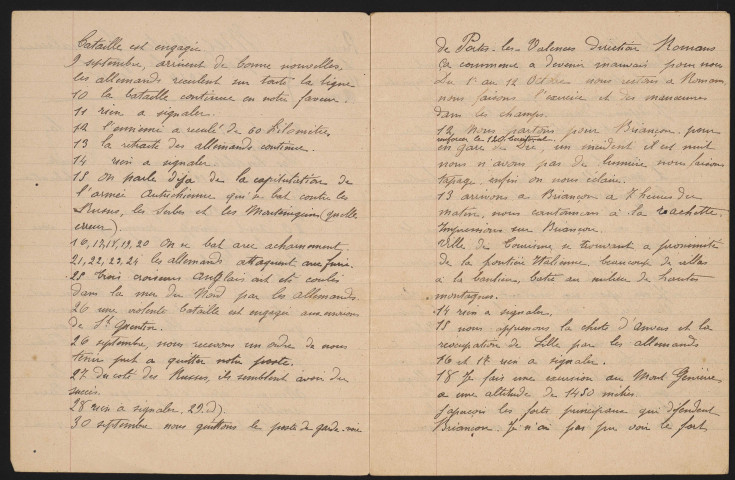 bataille est engagée
9 septembre, arrivent de bonne nouvelles,
les allemands reculent sur toute la ligne
10 la bataille continue en notre faveur.
11 rien a signaler.
12 l'ennemi a reculé de 60 kilomètres
13 la retraite des allemands continue.
14 rien a signaler
15 on parle déja de la capitulation de
l'armée Autrichienne qui se bat contre les
Russes, les Serbes et les Monténégrins (quelle
erreur).
16, 17, 18, 19, 20 On se bat avec acharnement
21, 22, 23, 24 les allemands attaquent avec furie.
25 trois croiseurs Anglais ont été coulés
dans la mer du Nord par les allemands.
26 une violente bataille est engagée aux environs
de St Quentin.
26 septembre, nous recevons un ordre de nous
tenir prêt a quitter notre poste.
27 du coté des Russes, ils semblent avoir du
succès.
28 rien a signaler. 29 (id).
30 septembre nous quittons le poste de garde-voie
de Portes-les-Valences direction Romans
Ça commence a devenir mauvais pour nous
Du 1er au 12 Octobre nous restons a Romans
nous faisons l'exercice et des manœuvres
dans les champs.
12 Nous partons pour Briançon pour
renforcer le 120 territorial.
en gare de Die, un incident il est nuit
nous n'avons pas de lumière nous faisons
tapage enfin on nous éclaire.
13 arrivons a Briançon a 7 heures du
matin, nous cantonnons à la
Impressions sur Briançon.
Ville de Tourisme se trouvant a proximité
de la frontière Italienne, beaucoup de villas
a la banlieue, batie au milieu de hautes
montagnes.
14 rien a signaler,
15 nous apprenons la chute d'Anvers et la
réoccupation de Lille par les allemands
16 et 17 rien a signaler.
18 Je fais une excursion au Mont Genièvre
a une altitude de 1450 mètres.
J'aperçois les forts principaux qui défendent
Briançon. Je n'ai pas pu voir le fort